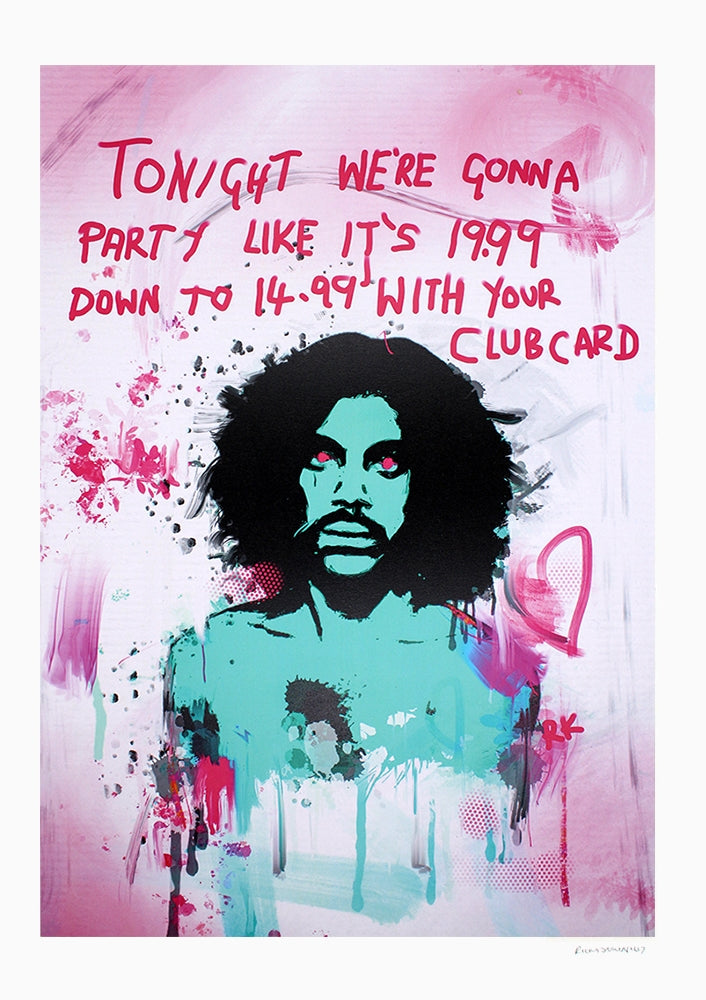 TONIGHT WE'RE GONNA
PARTY LIKE IT'S 19.99
DOWN TO 14.99 WITH YOUR
CLUBCARD
RK